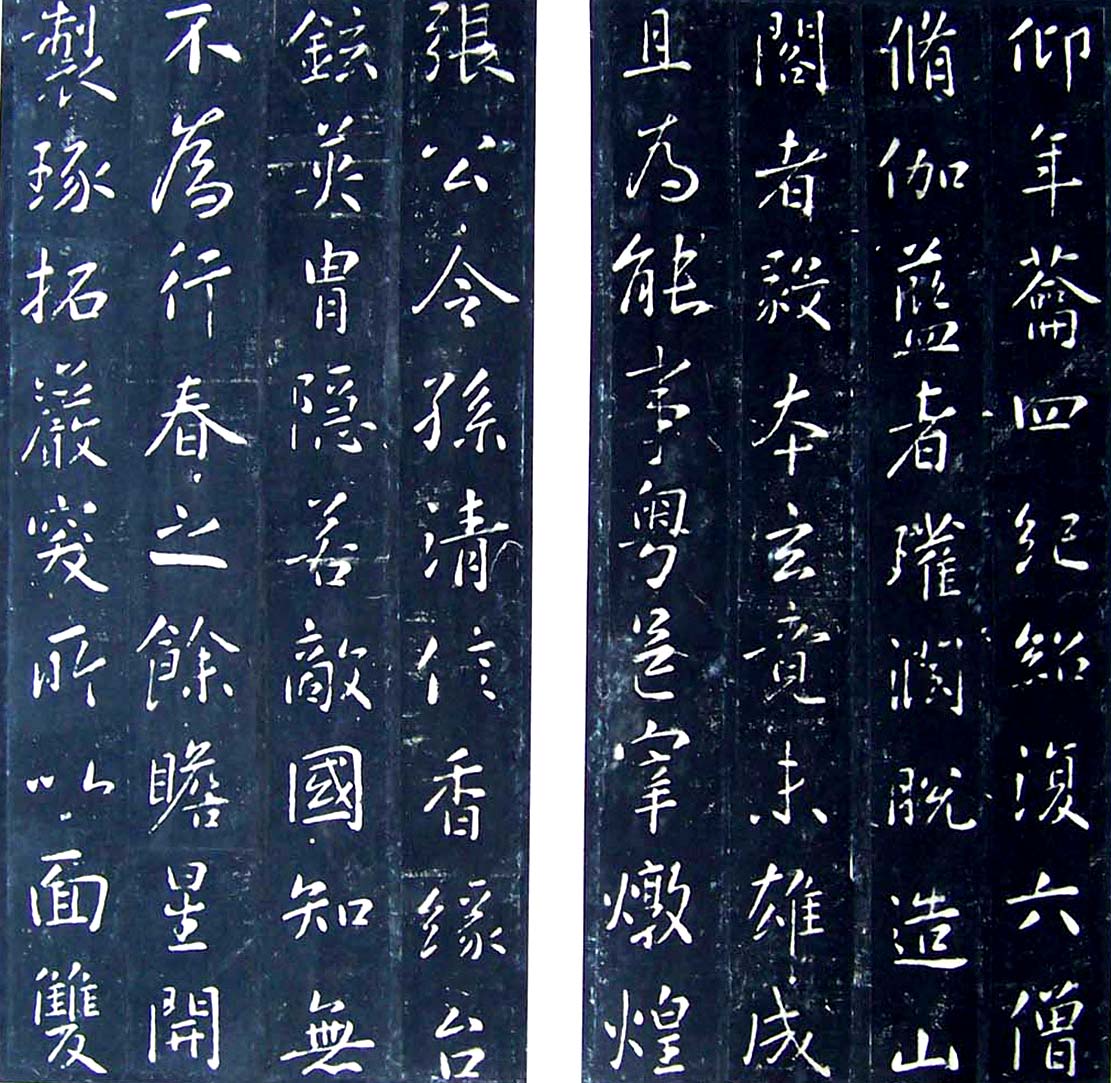 仰年蕭四紀紹復六僧
脩伽藍者隴潤脫造山
閣者毅本玄竟未雄成
且為能事粵邑宰燉煌
張公令孫清信香緣台
鉉英胄隱若敵國知無
不為行春之餘瞻星開
製琢拓巖窔所以面雙